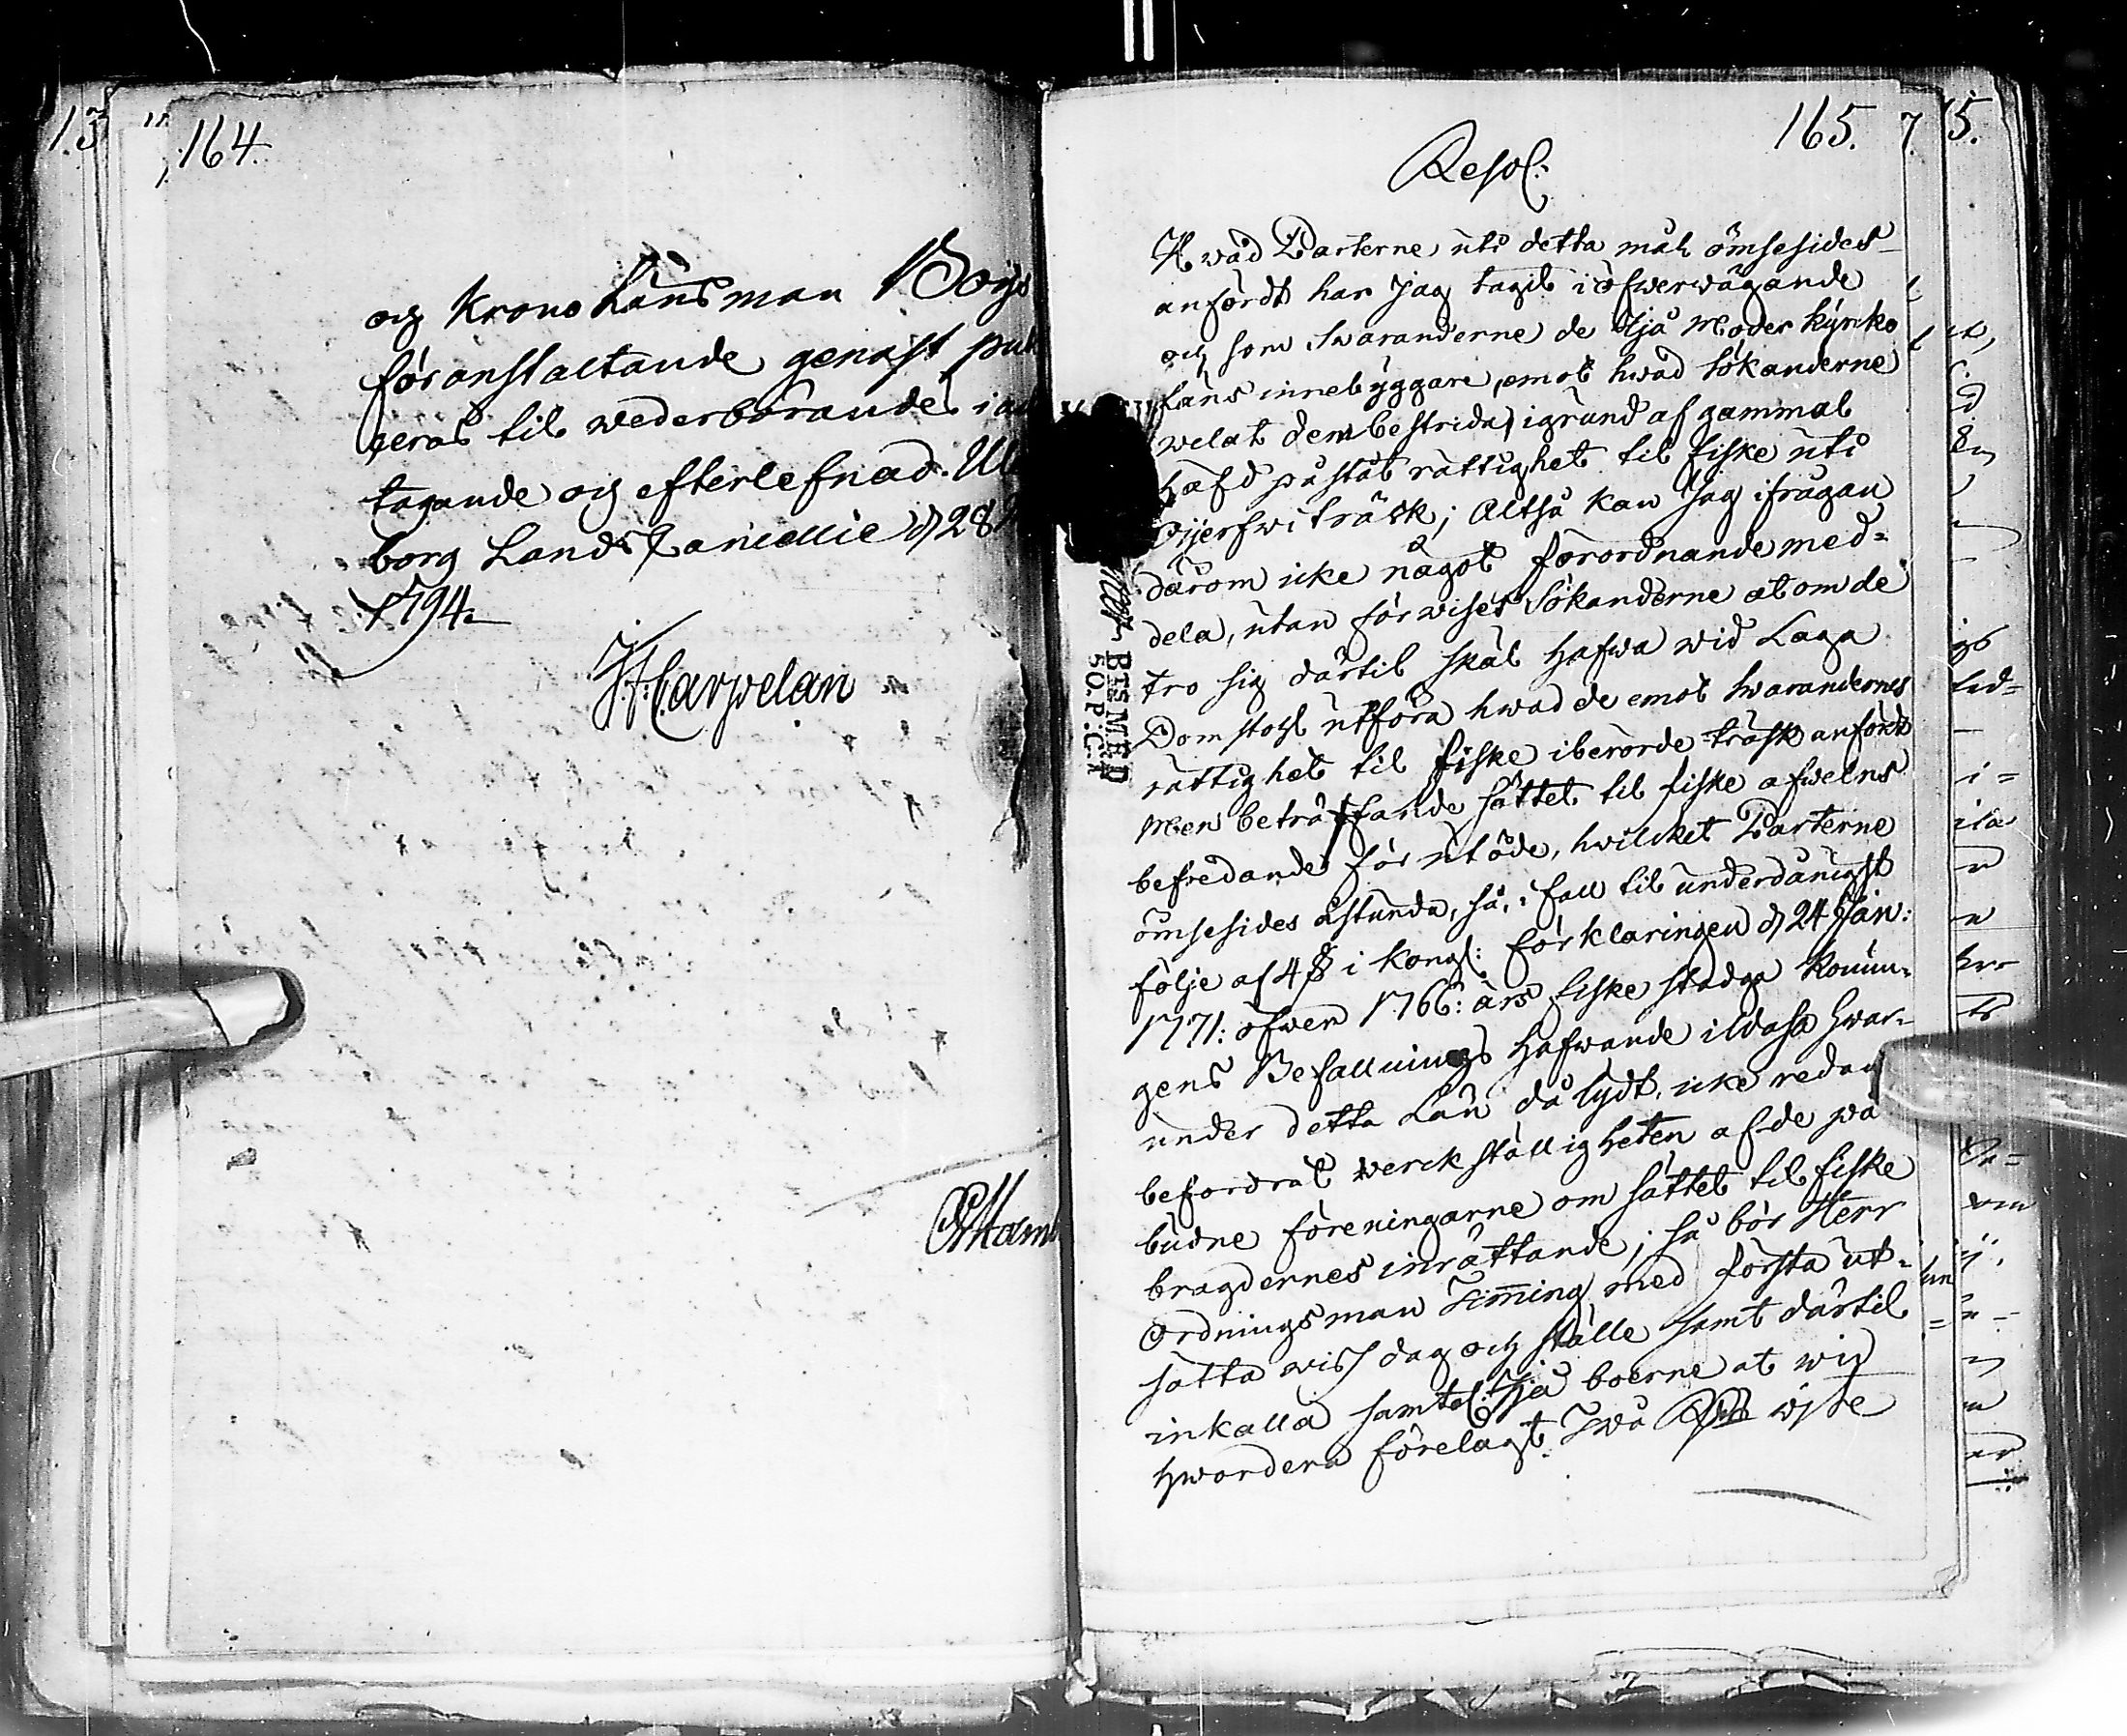 164.
och Krono Länsman
föranstaltande genast
ceras til wederbörandes
tagande och efterlefnad.
borg Lands Cancellie d 28
1794.
Carpelan
165.
Resol:
Hwad Parterne uti detta mål ömsesides
anfördt har Jag tagit i öfwerwägande
och som Swaranderne de Ijå Moder Kyrko
läns innebyggare, emot hwad Sökanderne
welat dem bestrida, i grund af gammal
häfd påståt rättighet til fiske uti
träsk; Altså kan Jag i frågan
därom icke något förordnande med-
dela, utan förwises Sökanderne at om de
tro sig därtil skäl hafwa wid Laga
Domstohl utföra hwad de emot Swarandernes
rättighet til fiske i berörde träsk anfördt
Men beträffande sättet til fiske afwelns
befredande för utöde, hwilcket Parterne
ömsesides åstunda, så, i fall til underdånigst
följe af 4 § i Kongl: förklaringen d 24 Jan:
1771: öfwer 1766: års fiske stadga Konun-
gens Befallnings Hafwande i Wasa hwar-
under detta Län då lydt, icke redan
befordrat werckställigheten af de på
budne föreningarne om sättet til fiske
bragdernes inrättande; så bör Herr
Ordningsman Timming med första ut-
sätta wiss dag och ställe samt därtil
inkalla samtel: Ijå boerne at wid
hwardera förelagt Twå wite